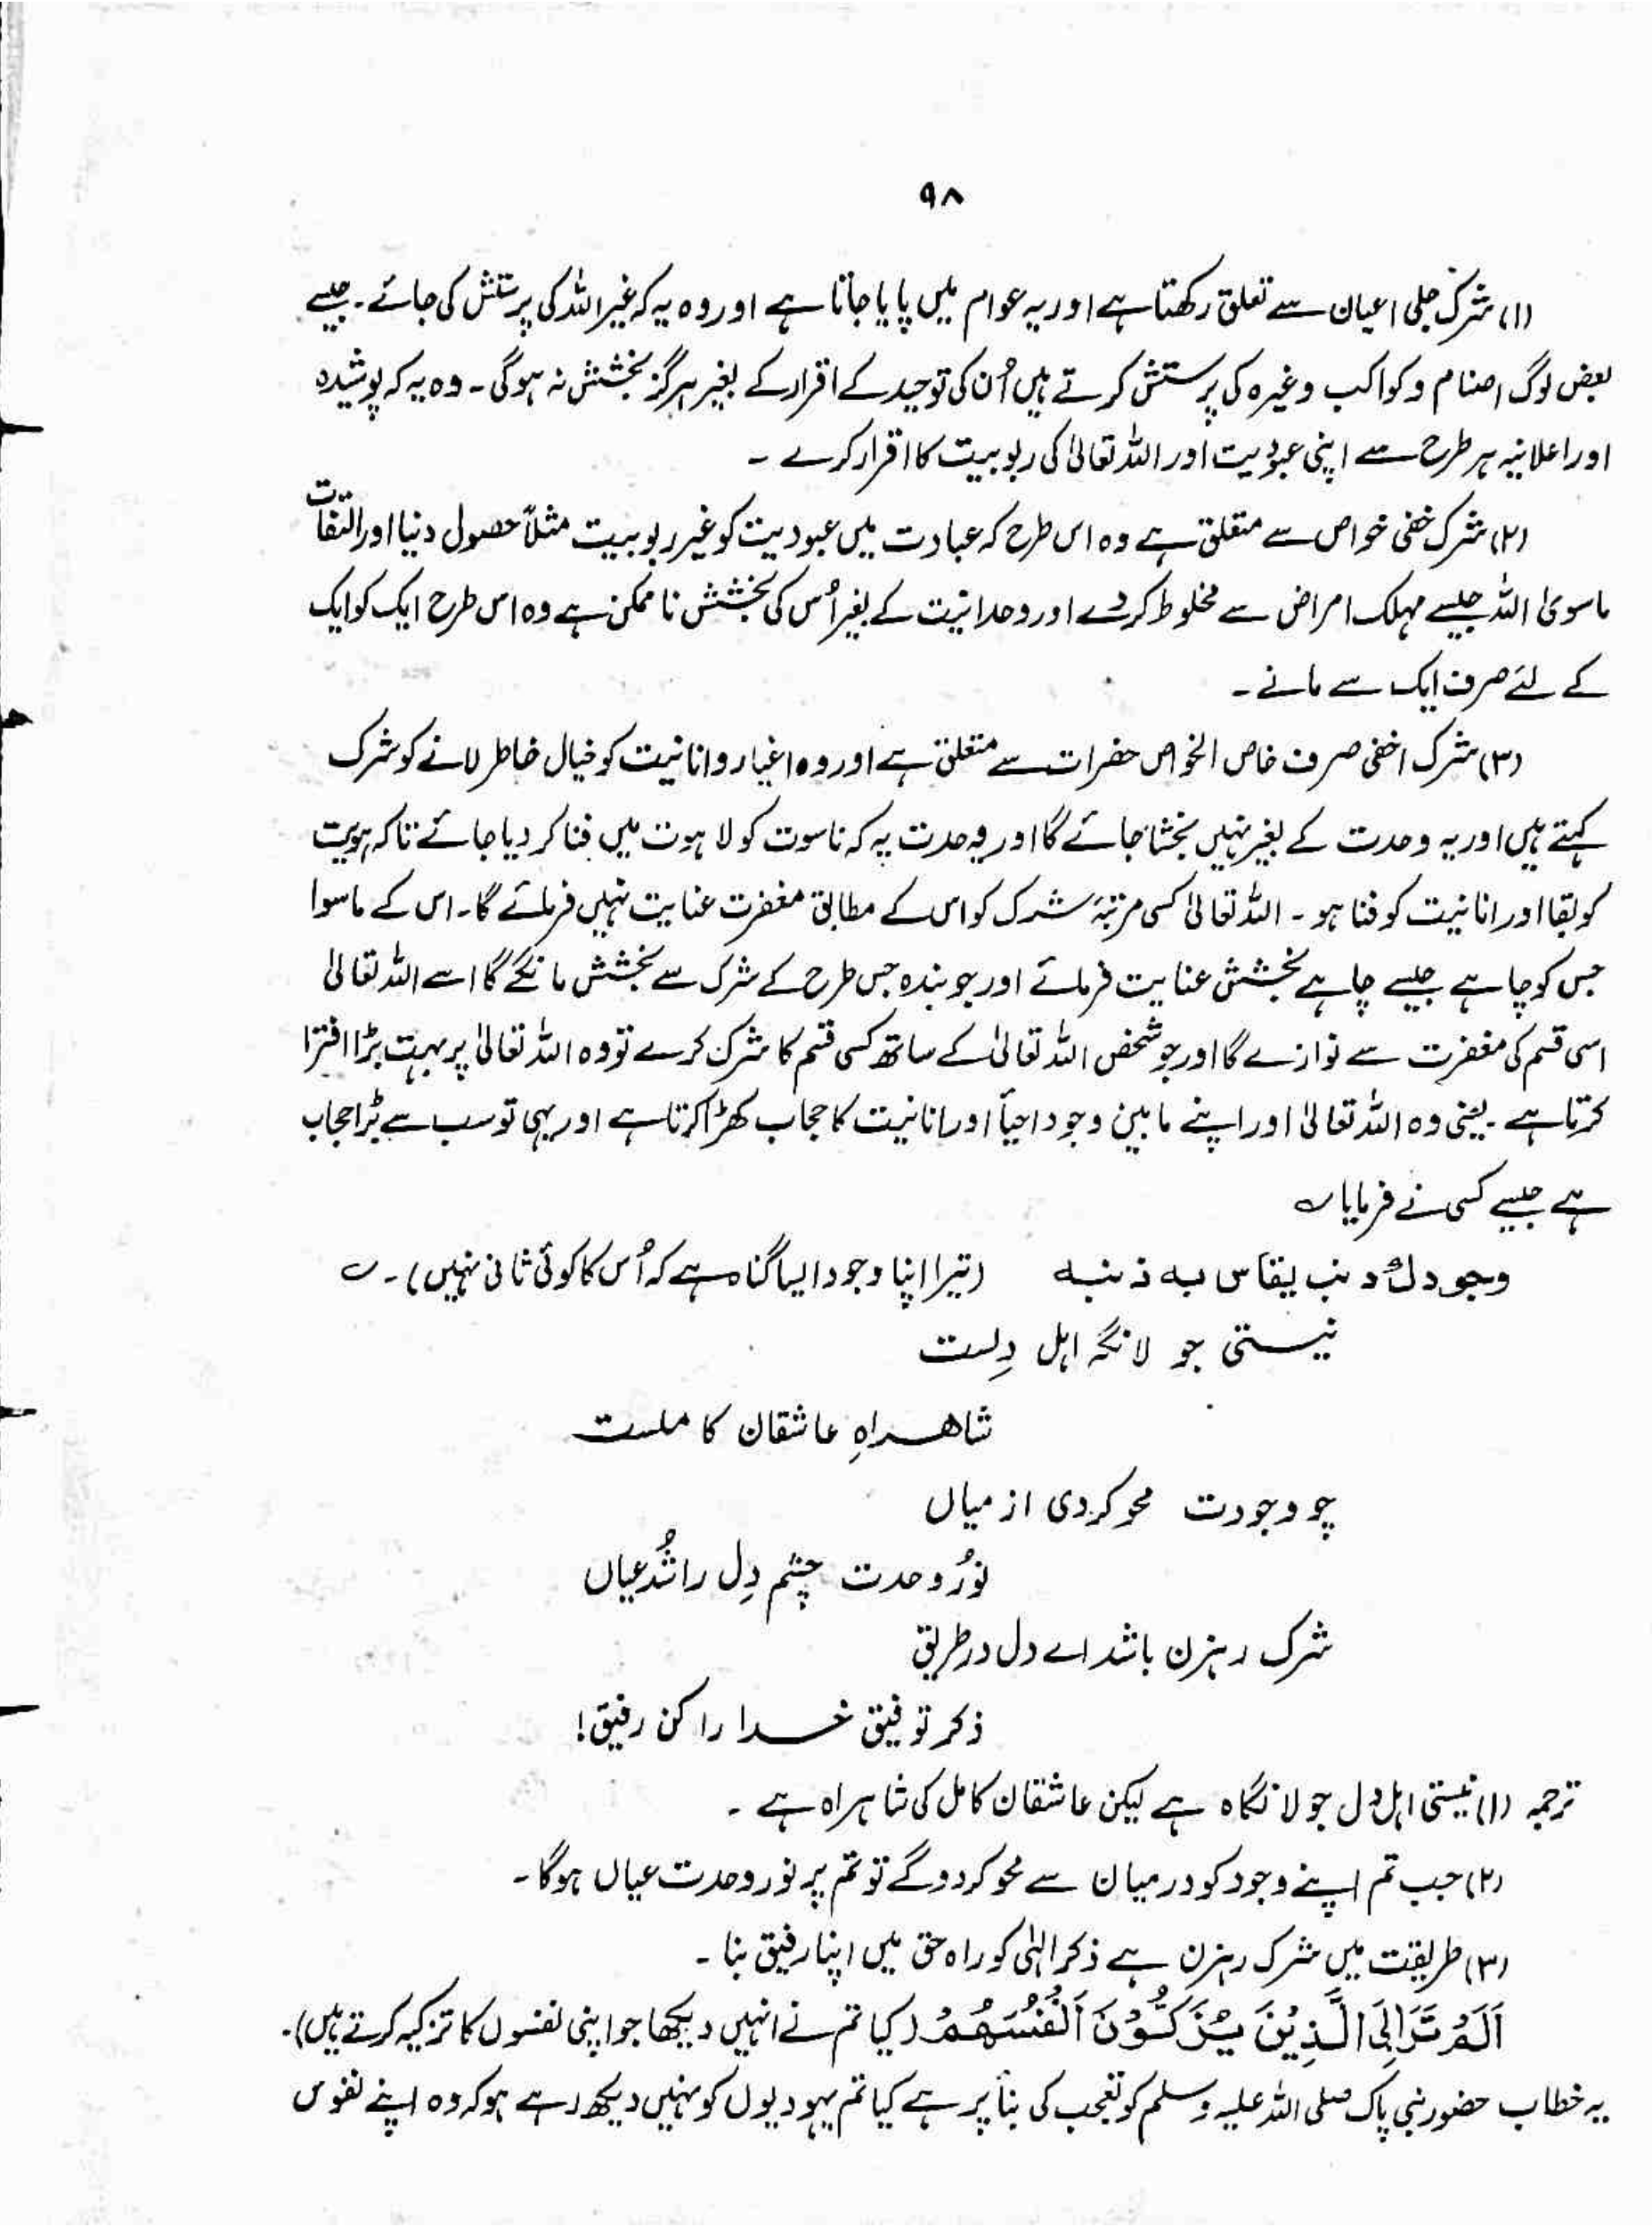 ۹۸
(۱) شرک جلی اعیان سے تعلق رکھتا ہے اور یہ عوام میں پایا جاتا ہے اور وہ یہ کہ غیر اللہ کی پرستش کی جائے۔ جیسے
بعض لوگ اصنام و کواکب وغیرہ کی پرستش کرتے ہیں اُن کی توحید کے اقرار کے بغیر ہرگز بخشش نہ ہوگی۔ وہ یہ کہ پوشیدہ
اور اعلانیہ ہر طرح سے اپنی عبودیت اور اللہ تعالیٰ کی ربوبیت کا اقرار کرے ۔
(۲) شرک خفی خواص سے متعلق ہے وہ اس طرح کہ عبادت میں عبودیت کو غیر ربوبیت مثلاً حصول دنیا اور التفات
ماسویٰ اللہ جیسے مہلک امراض سے مخلوط کر دے اور وحدانیت کے بغیر اُس کی بخشش ناممکن ہے وہ اس طرح ایک کو ایک
کے لئے صرف ایک سے مانے ۔
(۳) شرک اخفیٰ صرف خاص الخواص حضرات سے متعلق ہے اور وہ اغیار و انانیت کو خیال خاطر لانے کو شرک
کہتے ہیں اور یہ وحدت کے بغیر نہیں بخشا جائے گا اور وحدت یہ کہ ناسوت کو لاہوت میں فنا کر دیا جائے تاکہ ہویت
کو بقا اور انانیت کو فنا ہو ۔ اللہ تعالیٰ کسی مرتبۂ شرک کو اس کے مطابق مغفرت عنایت نہیں فرمائے گا۔ اس کے ماسوا
جس کو چاہے جیسے چاہے بخشش عنایت فرمائے اور جو بندہ جس طرح کے شرک سے بخشش مانگے گا اسے اللہ تعالیٰ
اسی قسم کی مغفرت سے نوازے گا اور جو شخص اللہ تعالیٰ کے ساتھ کسی قسم کا شرک کرے تو وہ اللہ تعالیٰ پر بہت بڑا افترا
کرتا ہے ۔ یعنی وہ اللہ تعالیٰ اور اپنے مابین وجود اور انانیت کا حجاب کھڑا کرتا ہے اور یہی تو سب سے بڑا حجاب
ہے جیسے کسی نے فرمایا ؎
وجودك ذنب یقاس به ذنبه (تیرا اپنا وجود ایسا گناہ ہے کہ اُس کا کوئی ثانی نہیں)۔ ؎
نیستی جو لانگہ اہل دِلست
شاھراہِ عاشقان کا ملست
چو وجودت محو کردی از میاں
نورُ وحدت چشم دِل را شُد عیاں
شرک رہزن باشد اے دل در طریق
ذکر توفیق خدا را کن رفیق!
ترجمہ (۱) نیستی اہل دل جولانگاہ ہے لیکن عاشقان کامل کی شاہراہ ہے ۔
(۲) جب تم اپنے وجود کو درمیان سے محو کر دو گے تو تم پر نور وحدت عیاں ہوگا ۔
(۳) طریقت میں شرک رہزن ہے ذکر الہٰی کو راہ حق میں اپنا رفیق بنا ۔
اَلَمْ تَرَ اِلَی الَّذِیْنَ یُزَکُّوْنَ اَنْفُسَھُمْ (کیا تم نے انہیں دیکھا جو اپنی نفسوں کا تزکیہ کرتے ہیں)۔
یہ خطاب حضور نبی پاک صلی اللہ علیہ وسلم کو تعجب کی بنأ پر ہے کیا تم یہودیوں کو نہیں دیکھ رہے ہو کہ وہ اپنے نفوس